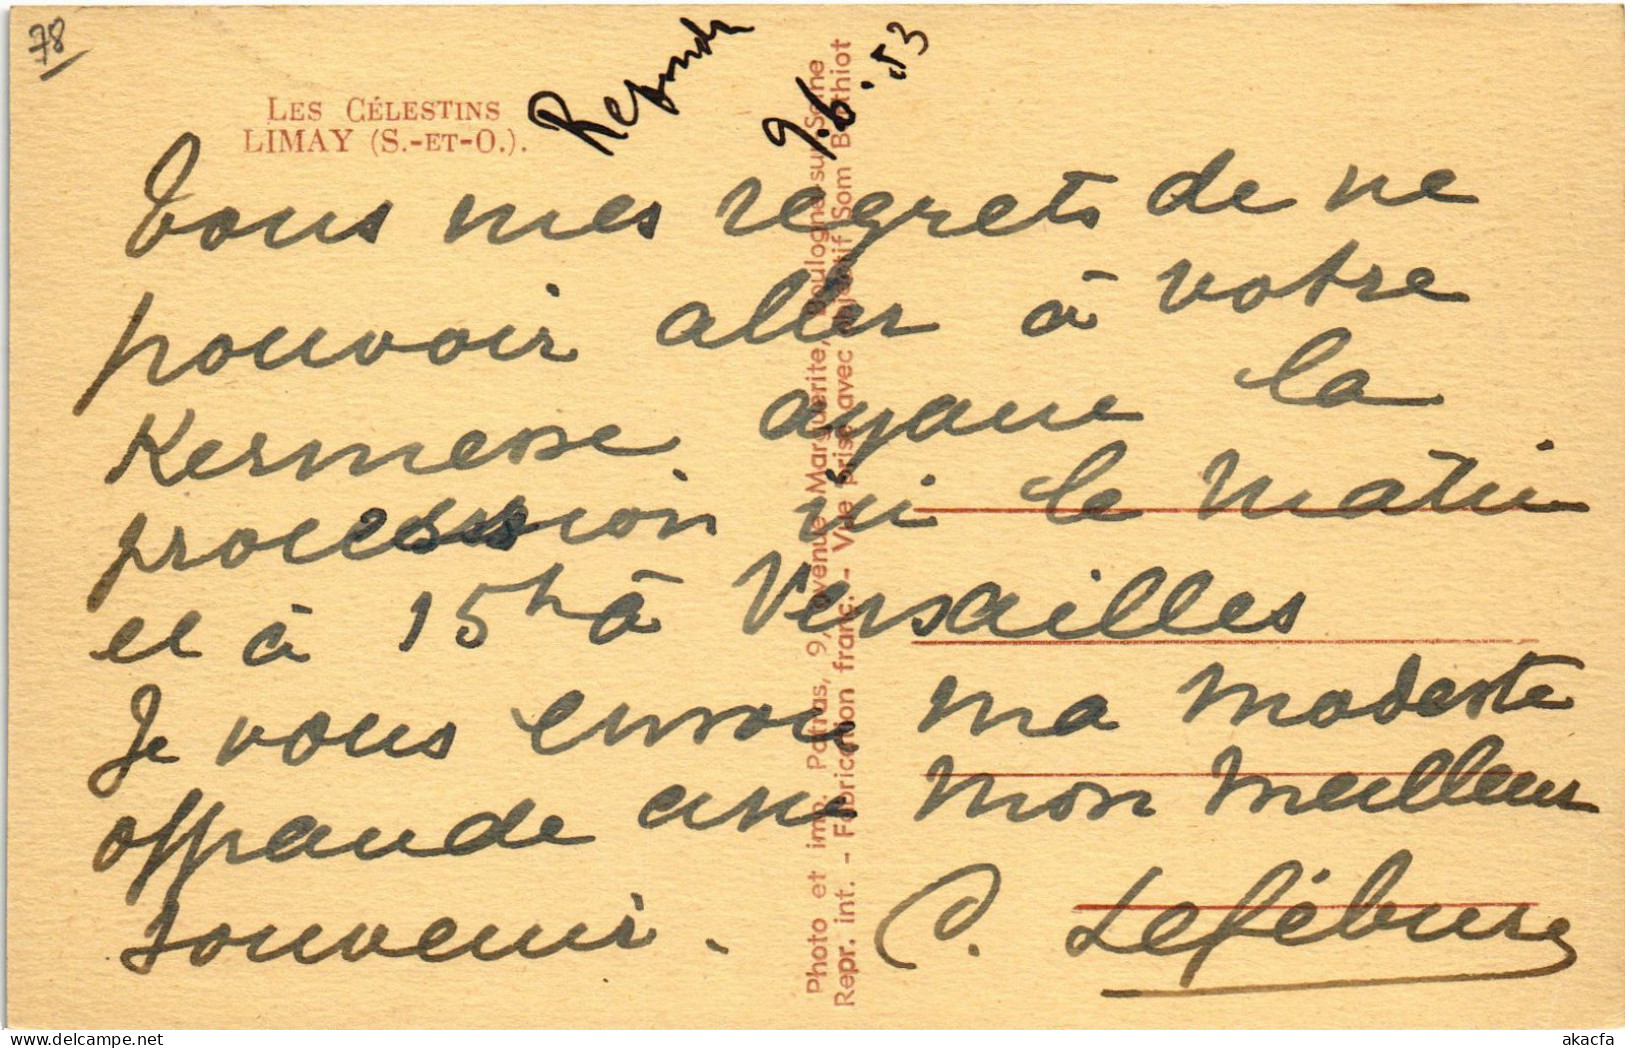 78
LES CÉLESTINS
LIMAY (S.-ET-O.).
9.6.53
Tous mes regrets de ne
pouvoir aller à votre
Kermesse ayant la
procession ici le matin
et à 15h à Versailles
Je vous envoie ma modeste
offrande avec mon meilleur
souvenir. C. Lefébure
Photo et imp. Patras, 9, avenue Marguerite, Boulogne-sur-Seine
Repr. int. - Fabrication franc. - Vue prise avec Objectif Som Berthiot
akacfa